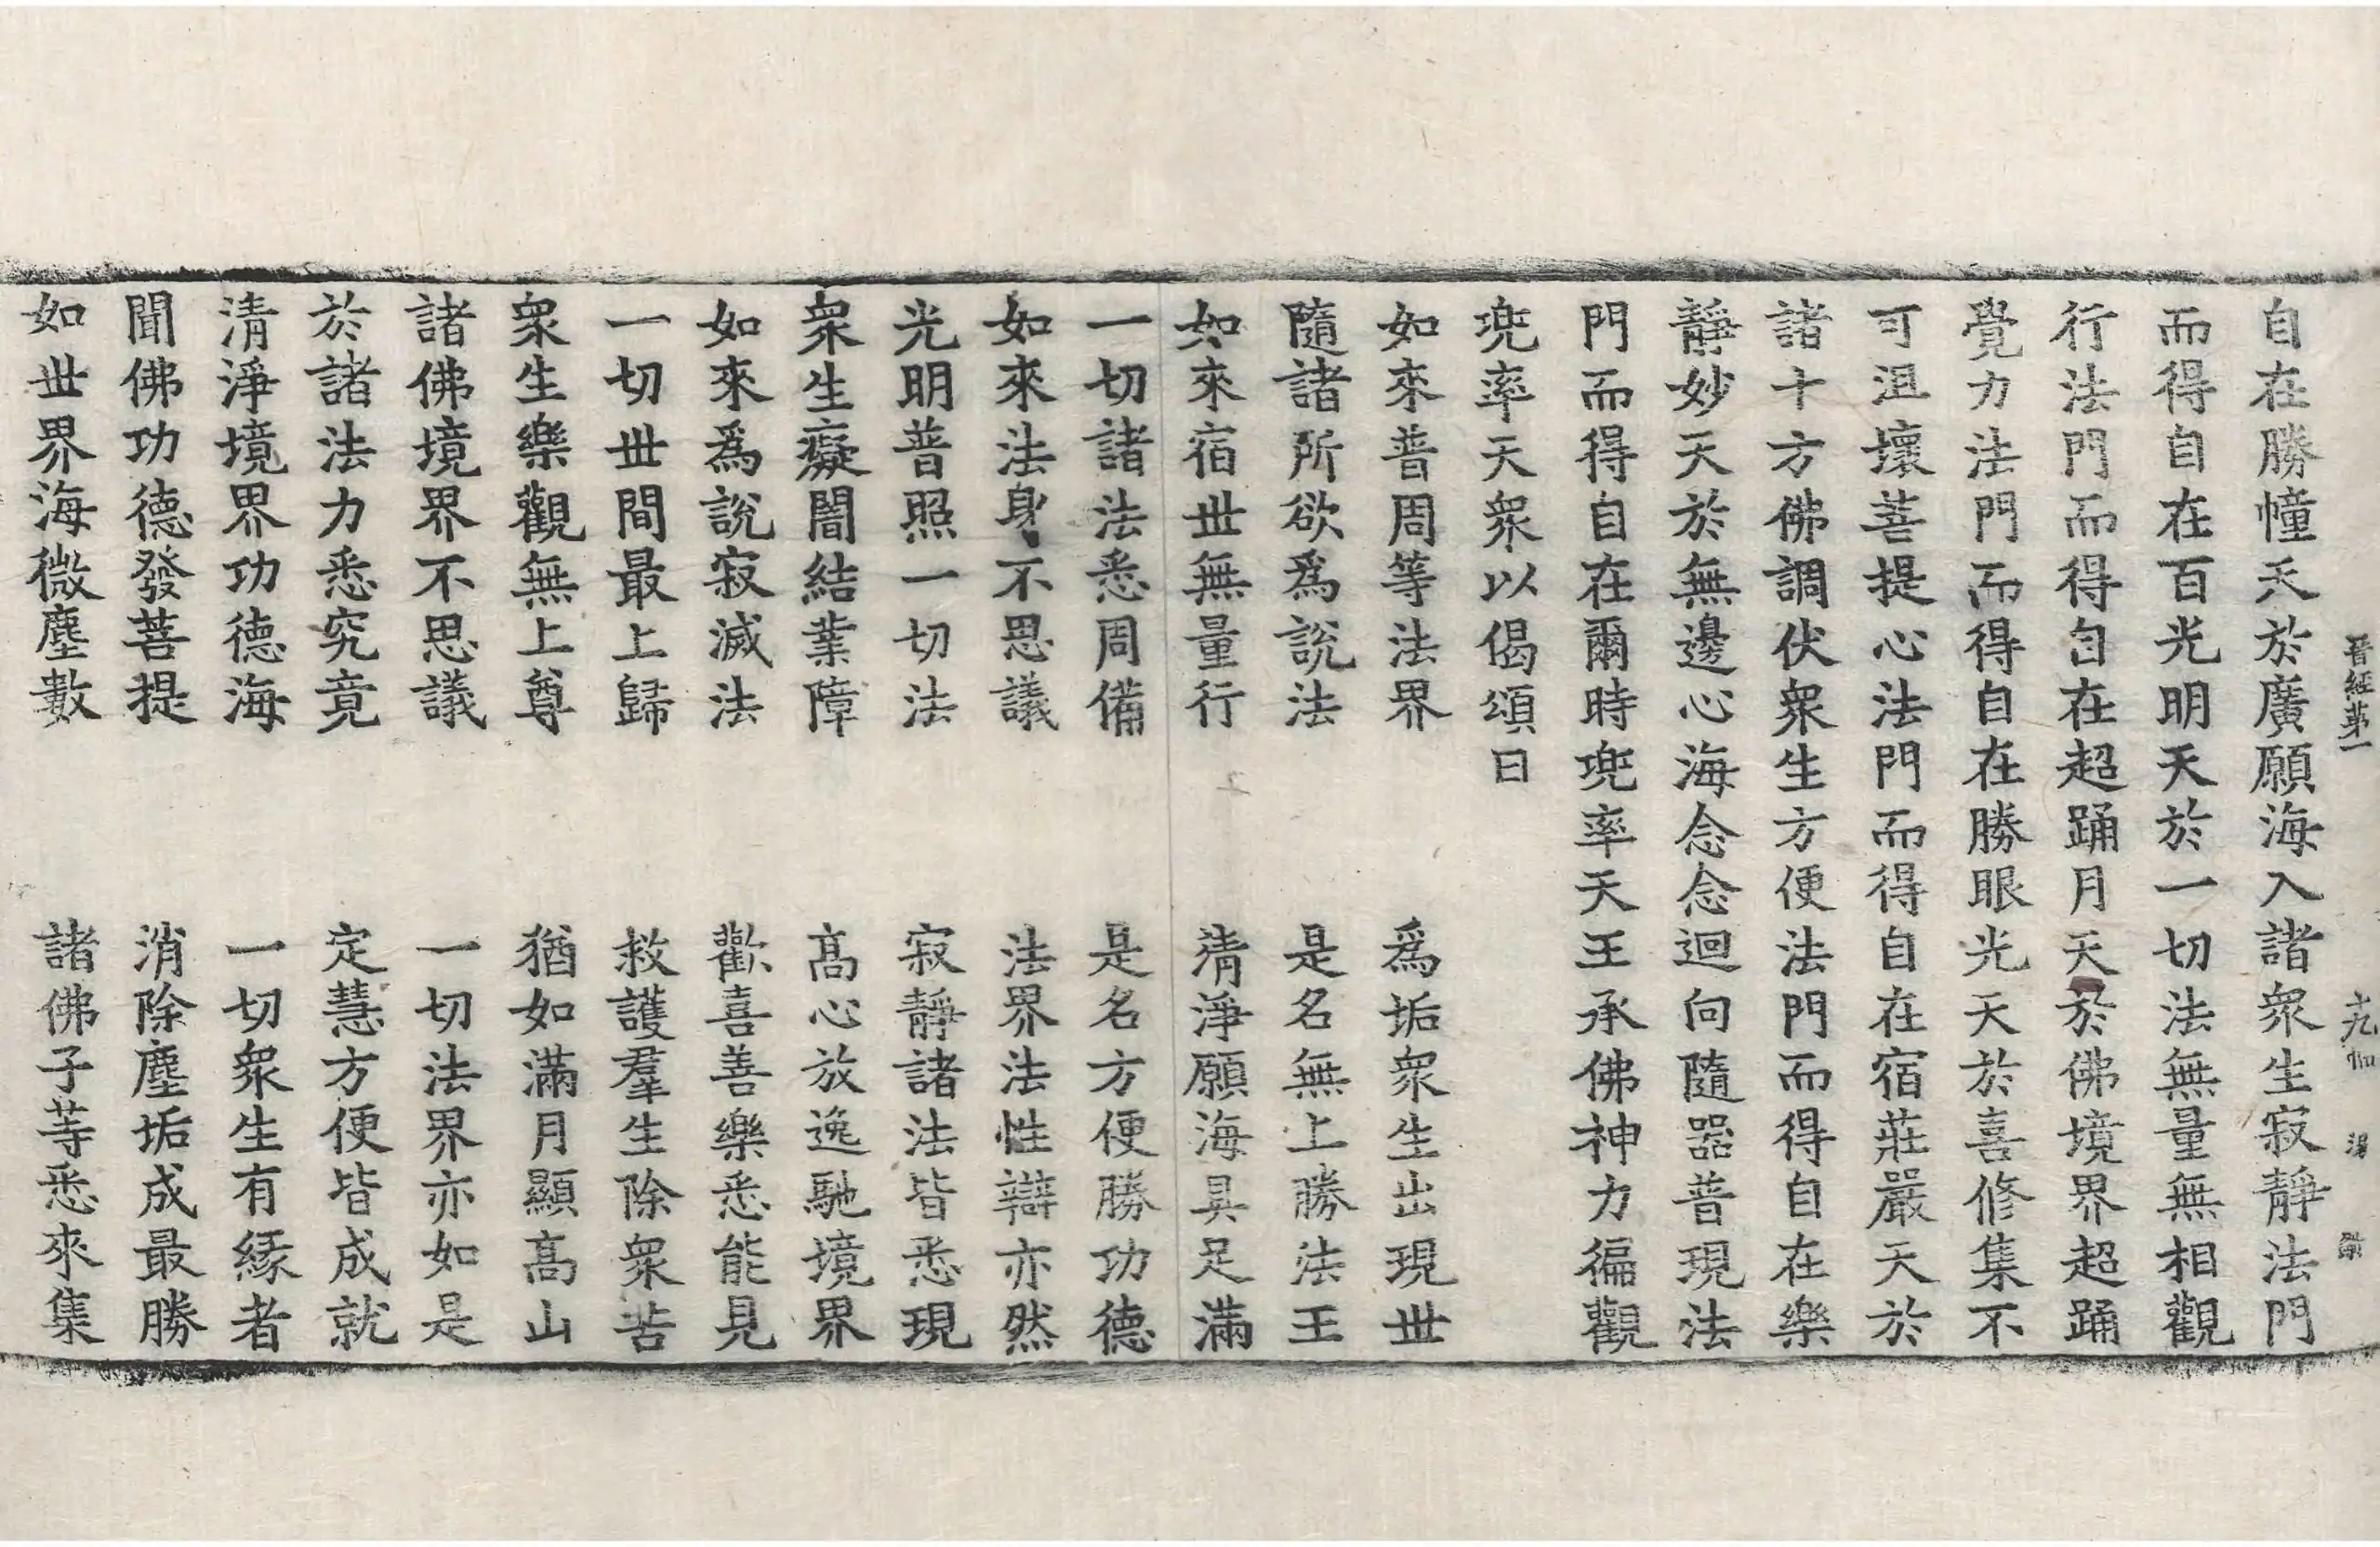 晉經第一 十九 湯
自在勝幢天於廣願海入諸衆生寂靜法門
而得自在百光明天於一切法無量無相觀
行法門而得自在超踊月天於佛境界超踊
覺力法門而得自在勝眼光天於喜修集不
可沮壞菩提心法門而得自在宿莊嚴天於
諸十方佛調伏衆生方便法門而得自在樂
靜妙天於無邊心海念念迴向隨器普現法
門而得自在爾時兜率天王承佛神力徧觀
兜率天衆以偈頌曰
如來普周等法界 爲垢衆生出現世
隨諸所欲爲說法 是名無上勝法王
如來宿世無量行 清淨願海具足滿
一切諸法悉周備 是名方便勝功德
如來法身不思議 法界法性辯亦然
光明普照一切法 寂靜諸法皆悉現
衆生癡闇結業障 高心放逸馳境界
如來爲說寂滅法 歡喜善樂悉能見
一切世間最上歸 救護羣生除衆苦
衆生樂觀無上尊 猶如滿月顯高山
諸佛境界不思議 一切法界亦如是
於諸法力悉究竟 定慧方便皆成就
清淨境界功德海 一切衆生有緣者
聞佛功德發菩提 消除塵垢成最勝
如世界海微塵數 諸佛子等悉來集